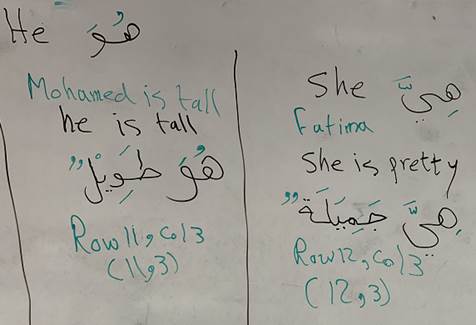 He هُوَ
Mohamed is tall
he is tall
هُوَ طَوِيْلٌ
Row 11, col 3
(11,3)
She هِيَّ
Fatima
She is pretty
هِيَّ جَمِيَلَةٌ
Row 12, col 3
(12,3)